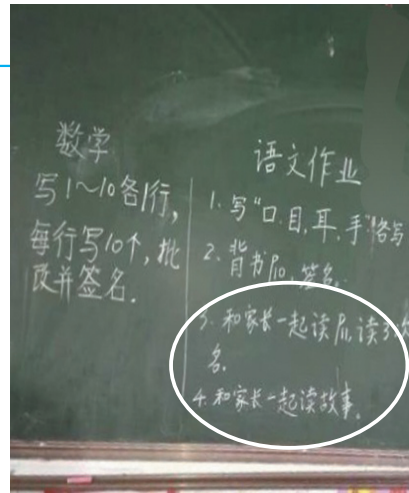 数学
写1~10各1行,
每行写10个,批
改并签名.
语文作业
1.写"口.目.耳.手"各写
2.背书P10.签名.
3.和家长一起读P11,读3次
名.
4.和家长一起读故事.